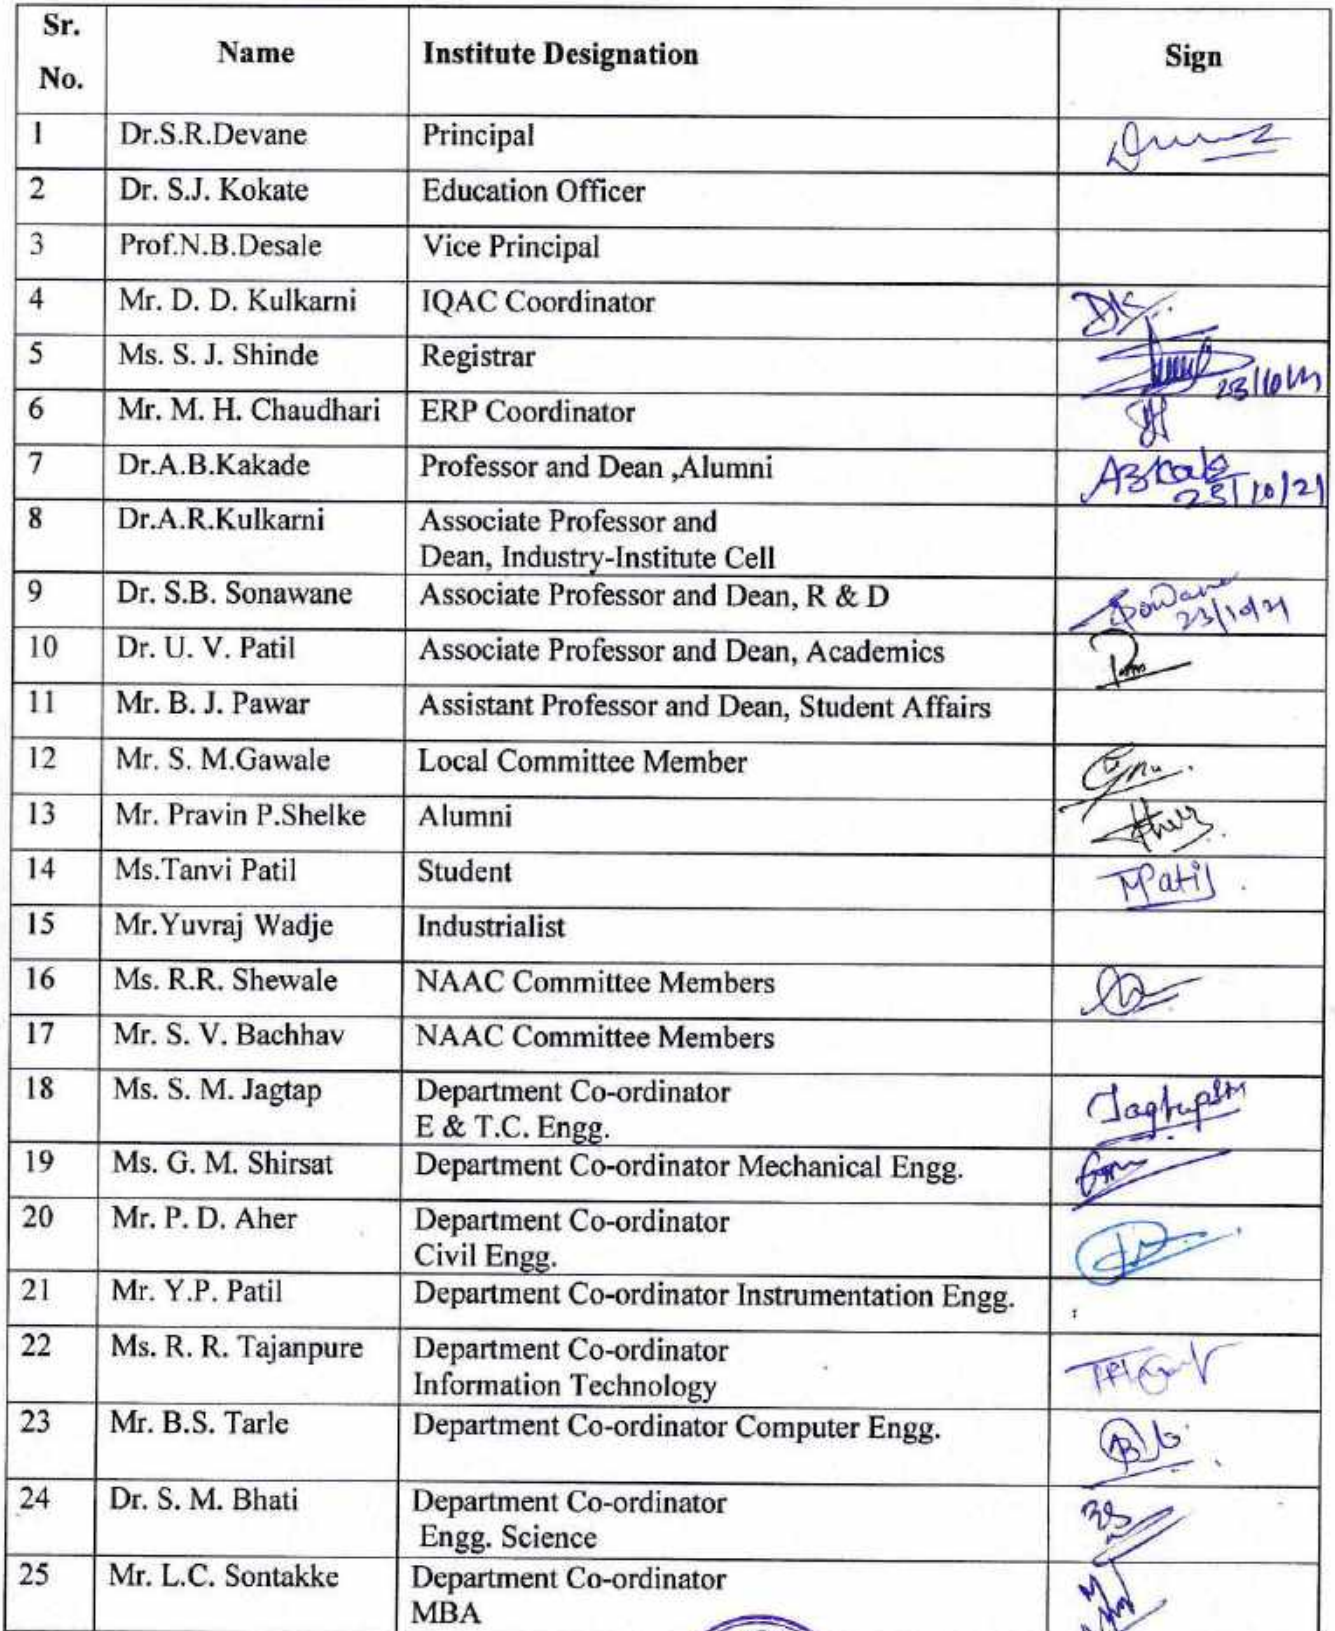 Sr. No. Name Institute Designation Sign
1 Dr.S.R.Devane Principal
2 Dr. S.J. Kokate Education Officer
3 Prof.N.B.Desale Vice Principal
4 Mr. D. D. Kulkarni IQAC Coordinator
5 Ms. S. J. Shinde Registrar
6 Mr. M. H. Chaudhari ERP Coordinator
7 Dr.A.B.Kakade Professor and Dean ,Alumni 23/10/21
8 Dr.A.R.Kulkarni Associate Professor and
Dean, Industry-Institute Cell
9 Dr. S.B. Sonawane Associate Professor and Dean, R & D 23/10/21
10 Dr. U. V. Patil Associate Professor and Dean, Academics
11 Mr. B. J. Pawar Assistant Professor and Dean, Student Affairs
12 Mr. S. M.Gawale Local Committee Member
13 Mr. Pravin P.Shelke Alumni
14 Ms.Tanvi Patil Student TPatil
15 Mr.Yuvraj Wadje Industrialist
16 Ms. R.R. Shewale NAAC Committee Members
17 Mr. S. V. Bachhav NAAC Committee Members
18 Ms. S. M. Jagtap Department Co-ordinator JagtapSM
E & T.C. Engg.
19 Ms. G. M. Shirsat Department Co-ordinator Mechanical Engg.
20 Mr. P. D. Aher Department Co-ordinator
Civil Engg.
21 Mr. Y.P. Patil Department Co-ordinator Instrumentation Engg.
22 Ms. R. R. Tajanpure Department Co-ordinator
Information Technology
23 Mr. B.S. Tarle Department Co-ordinator Computer Engg.
24 Dr. S. M. Bhati Department Co-ordinator
Engg. Science
25 Mr. L.C. Sontakke Department Co-ordinator
MBA